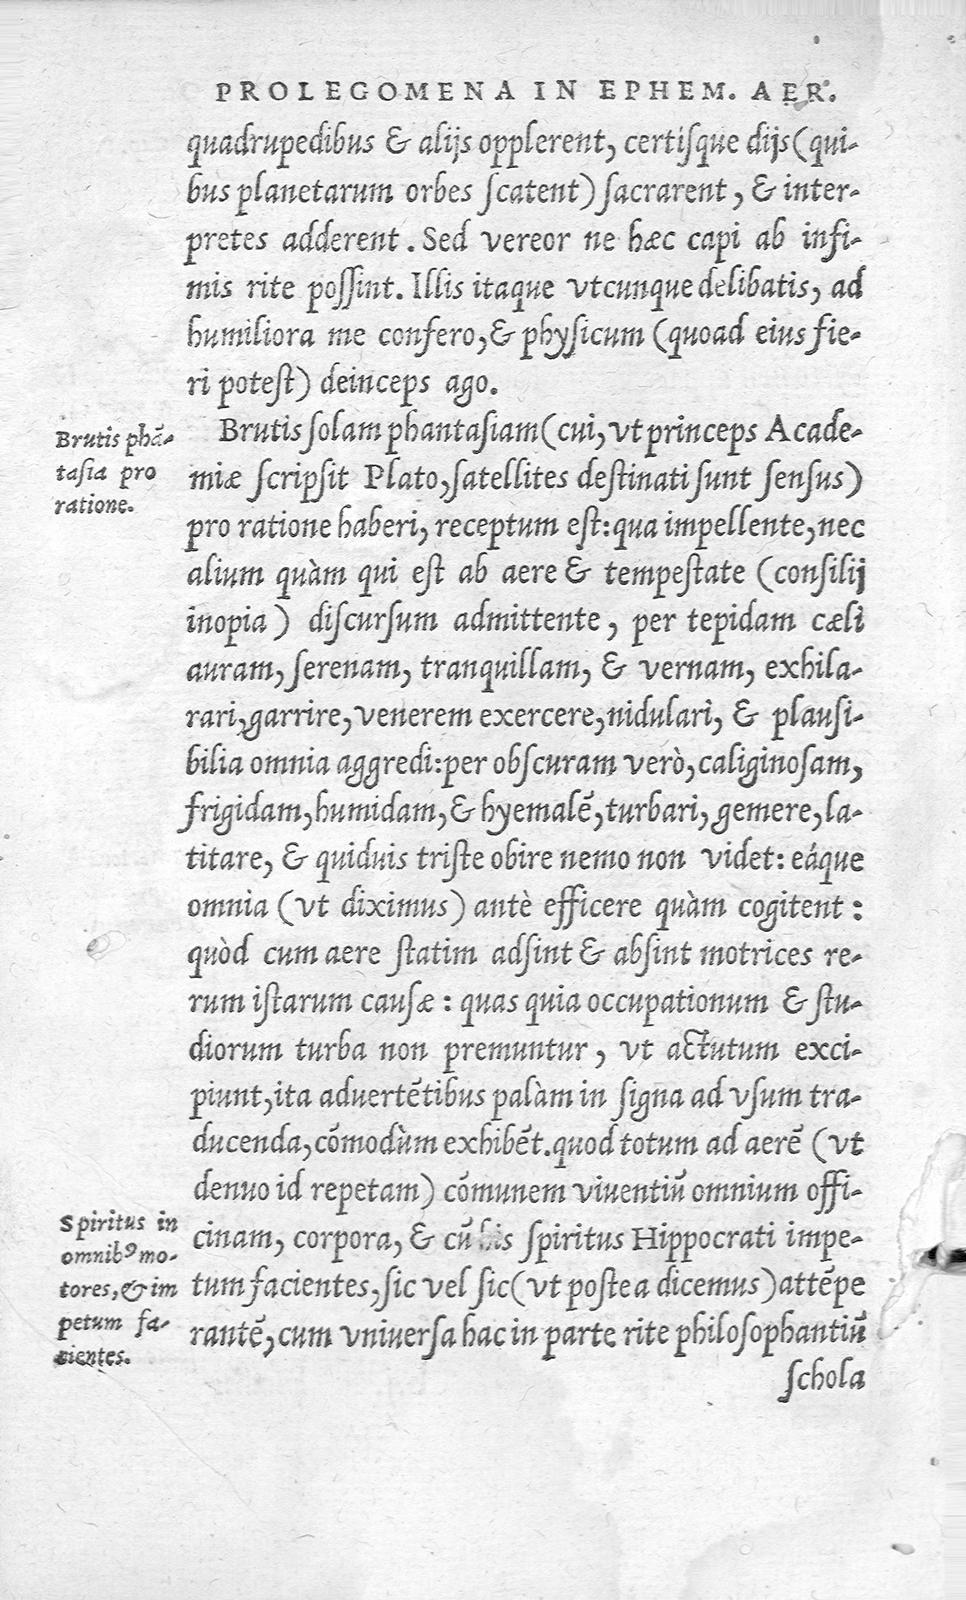 PROLEGOMENA IN EPHEM. AER.
quadrupedibus & alijs opplerent, certiſque dijs (qui-
bus planetarum orbes ſcatent) ſacrarent, & inter-
pretes adderent. Sed vereor ne hæc capi ab infi-
mis rite poſſint. Illis itaque vtcunque delibatis, ad
humiliora me confero, & phyſicum (quoad eius fie-
ri poteſt) deinceps ago.
Brutis phā-
taſia pro
ratione.
Brutis ſolam phantaſiam (cui, vt princeps Acade-
miæ ſcripſit Plato, ſatellites deſtinati ſunt ſenſus)
pro ratione haberi, receptum eſt: qua impellente, nec
alium quàm qui eſt ab aere & tempeſtate (conſilij
inopia) diſcurſum admittente, per tepidam cæli
auram, ſerenam, tranquillam, & vernam, exhila-
rari, garrire, venerem exercere, nidulari, & plauſi-
bilia omnia aggredi: per obſcuram verò, caliginoſam,
frigidam, humidam, & hyemalē, turbari, gemere, la-
titare, & quiduis triſte obire nemo non videt: eáque
omnia (vt diximus) antè efficere quàm cogitent:
quòd cum aere ſtatim adſint & abſint motrices re-
rum iſtarum cauſæ: quas quia occupationum & ſtu-
diorum turba non premuntur, vt actutum exci-
piunt, ita aduertētibus palàm in ſigna ad vſum tra-
ducenda, cōmodùm exhibēt. quod totum ad aerē (vt
denuo id repetam) cōmunem viuentiū omnium offi-
Spiritus in
omnibꝰ mo-
tores, & im
petum fa-
cientes.
cinam, corpora, & cū his ſpiritus Hippocrati impe-
tum facientes, ſic vel ſic (vt poſtea dicemus) attēpe
rantē, cum vniuerſa hac in parte rite philoſophantiū
ſchola